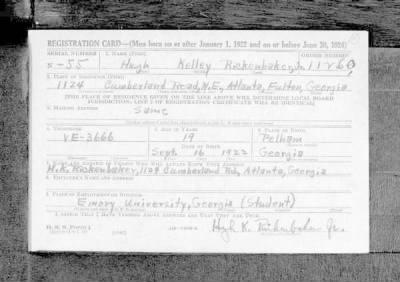 REGISTRATION CARD—(Men born on or after January 1, 1922 and on or before June 30, 1924)
SERIAL NUMBER 1. NAME (Print) ORDER NUMBER
N-55 Hugh Kelley Rickenbaker, Jr. 11260
2. PLACE OF RESIDENCE (Print)
1124 Cumberland Road, N.E., Atlanta, Fulton, Georgia
[THE PLACE OF RESIDENCE GIVEN ON THE LINE ABOVE WILL DETERMINE LOCAL BOARD
JURISDICTION; LINE 2 OF REGISTRATION CERTIFICATE WILL BE IDENTICAL]
3. MAILING ADDRESS
Same
4. TELEPHONE 5. AGE IN YEARS 6. PLACE OF BIRTH
VE-3666 19 Pelham
DATE OF BIRTH
Sept. 16 1922 Georgia
7. NAME AND ADDRESS OF PERSON WHO WILL ALWAYS KNOW YOUR ADDRESS
H.K. Rickenbaker, 1124 Cumberland Rd., Atlanta, Georgia
8. EMPLOYER'S NAME AND ADDRESS
9. PLACE OF EMPLOYMENT OR BUSINESS
Emory University, Georgia (Student)
I AFFIRM THAT I HAVE VERIFIED ABOVE ANSWERS AND THAT THEY ARE TRUE.
D. S. S. Form 1
Hugh K. Rickenbaker Jr.